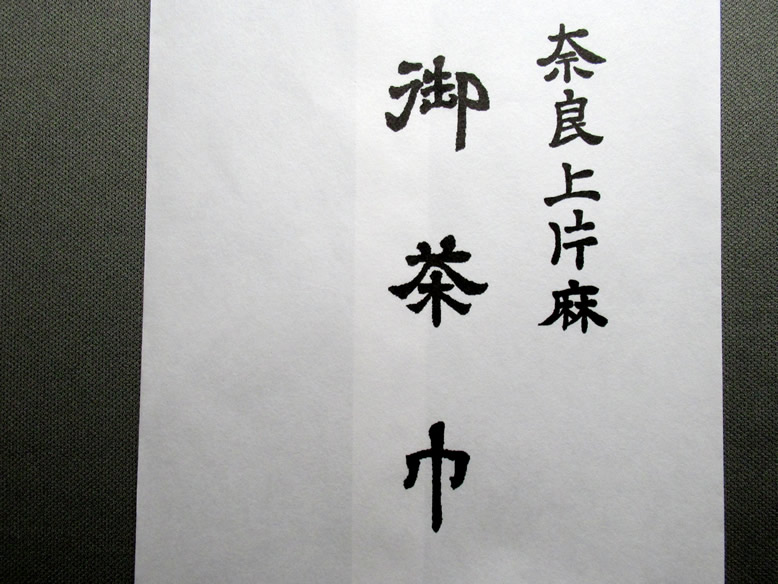 奈良上片麻
御茶巾